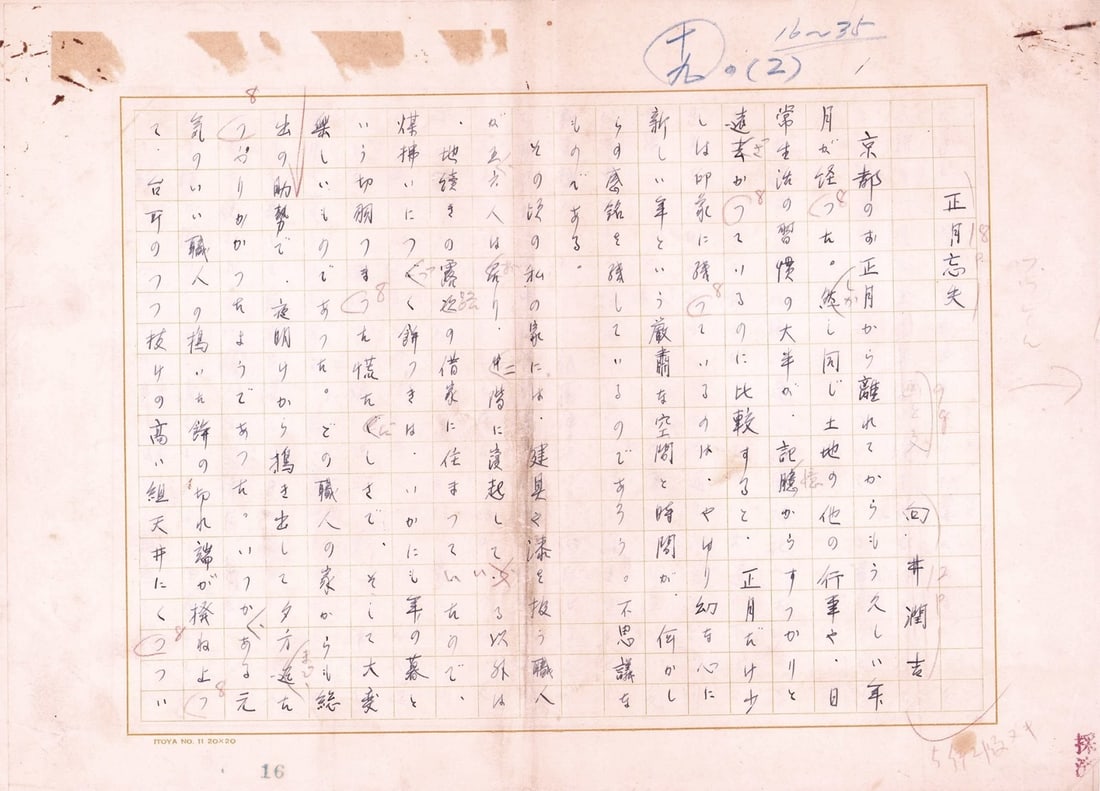 十九の(2)
16〜35
正月忘失
向井潤吉
京都のお正月から離れてからもう久しい年
月が経つた。然し同じ土地の他の行事や、日
常生活の習慣の大半が、記臆からすつかりと
遠去かつているのに比較すると、正月だけ少
しは印象に残つているのは、やはり幼な心に
新しい年という厳粛な空間と時間が、何かし
らの感銘を残しているのであろう。不思議な
ものである。
その頃の私の家には、建具や漆を扱う職人
が五六人は居り、二階に寝起している以外は
、地続きの露次の借家に住まつていたので、
煤払いにつゞく餅つきは、いかにも年の暮と
いう切羽つまつた慌たゞしさで、そして大変
楽しいものであつた。どの職人の家からも総
出の助勢で、夜明けから搗き出して夕方迄た
つぷりかかつたようであつた。いつか、ある元
気のいい職人の搗いた餅の切れ端が撥ね上つ
て、台所のつつ抜けの高い組天井にくつつい
ITOYA NO. 11 20×20
16